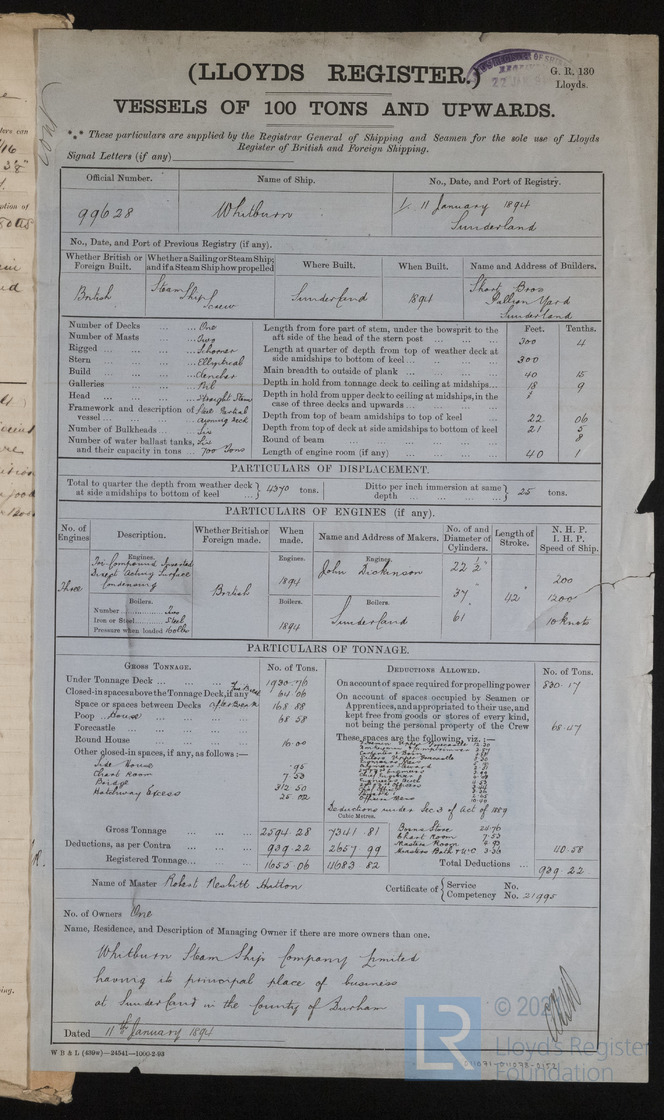 (LLOYDS REGISTER.)
G. R. 130
Lloyds.
VESSELS OF 100 TONS AND UPWARDS.
*** These particulars are supplied by the Registrar General of Shipping and Seamen for the sole use of Lloyds
Register of British and Foreign Shipping.
Signal Letters (if any)
Official Number. Name of Ship. No., Date, and Port of Registry.
99628 Whitburn 11 January 1894
Sunderland
No., Date, and Port of Previous Registry (if any).
Whether British or Foreign Built. Whether a Sailing or Steam Ship; and if a Steam Ship how propelled Where Built. When Built. Name and Address of Builders.
British Steam Ship Screw Sunderland 1894 Short Bros Pallion Yard Sunderland
Feet. Tenths.
Number of Decks ... ... One
Number of Masts ... ... Two
Rigged ... ... Schooner
Stern ... ... Elliptical
Build ... ... Clencher
Galleries ... ... Nil
Head ... ... Straight Stem
Framework and description of vessel ... Steel Partial awning deck
Number of Bulkheads ... Six
Number of water ballast tanks, and their capacity in tons ... Six 700 Tons
Length from fore part of stem, under the bowsprit to the aft side of the head of the stern post ... 300 4
Length at quarter of depth from top of weather deck at side amidships to bottom of keel ... 300
Main breadth to outside of plank ... 40 15
Depth in hold from tonnage deck to ceiling at midships... 18 9
Depth in hold from upper deck to ceiling at midships, in the case of three decks and upwards ...
Depth from top of beam amidships to top of keel 22 06
Depth from top of deck at side amidships to bottom of keel 21 5
Round of beam ... 8
Length of engine room (if any) ... 40 1
PARTICULARS OF DISPLACEMENT.
Total to quarter the depth from weather deck at side amidships to bottom of keel ... 4370 tons.
Ditto per inch immersion at same depth ... 25 tons.
PARTICULARS OF ENGINES (if any).
No. of Engines Description. Whether British or Foreign made. When made. Name and Address of Makers. No. of and Diameter of Cylinders. Length of Stroke. N. H. P. I. H. P. Speed of Ship.
Engines. Engines. Engines.
Three Tri-Compound Inverted Direct Acting Surface Condensing British 1894 John Dickinson 22 ½" 37" 61 42" 200 1200 10 knots
Boilers. Boilers. Boilers.
Number ... Two
Iron or Steel ... Steel
Pressure when loaded 160 lbs
1894 Sunderland
PARTICULARS OF TONNAGE.
GROSS TONNAGE. No. of Tons. DEDUCTIONS ALLOWED. No. of Tons.
Under Tonnage Deck ... 1930.76
Closed-in spaces above the Tonnage Deck, if any 64.06
Space or spaces between Decks 168.88
Poop House ... 68.58
Forecastle ...
Round House ... 16.00
Other closed-in spaces, if any, as follows:—
Side House .95
Chart Room 7.53
Bridge 312.50
Hatchway Excess 25.02
Gross Tonnage ... 2594.28 7341.81
Deductions, as per Contra ... 939.22 2657.99
Registered Tonnage... 1655.06 4683.82
On account of space required for propelling power 830.17
On account of spaces occupied by Seamen or Apprentices, and appropriated to their use, and kept free from goods or stores of every kind, not being the personal property of the Crew 68.47
These spaces are the following, viz.:—
Deductions under Sec 3 of Act of 1889
Cubic Metres.
Chart Room 7.53
Masters Room 4.93
Total Deductions ... 939.22
Name of Master Robert Nesbitt Hutton
Certificate of Service No.
Competency No. 21995
No. of Owners One
Name, Residence, and Description of Managing Owner if there are more owners than one.
Whitburn Steam Ship Company Limited
having its principal place of business
at Sunderland in the County of Durham
Dated 11th January 1894
W B & L (439w)—24541—1000-2-93
LR
Lloyd's Register
Foundation